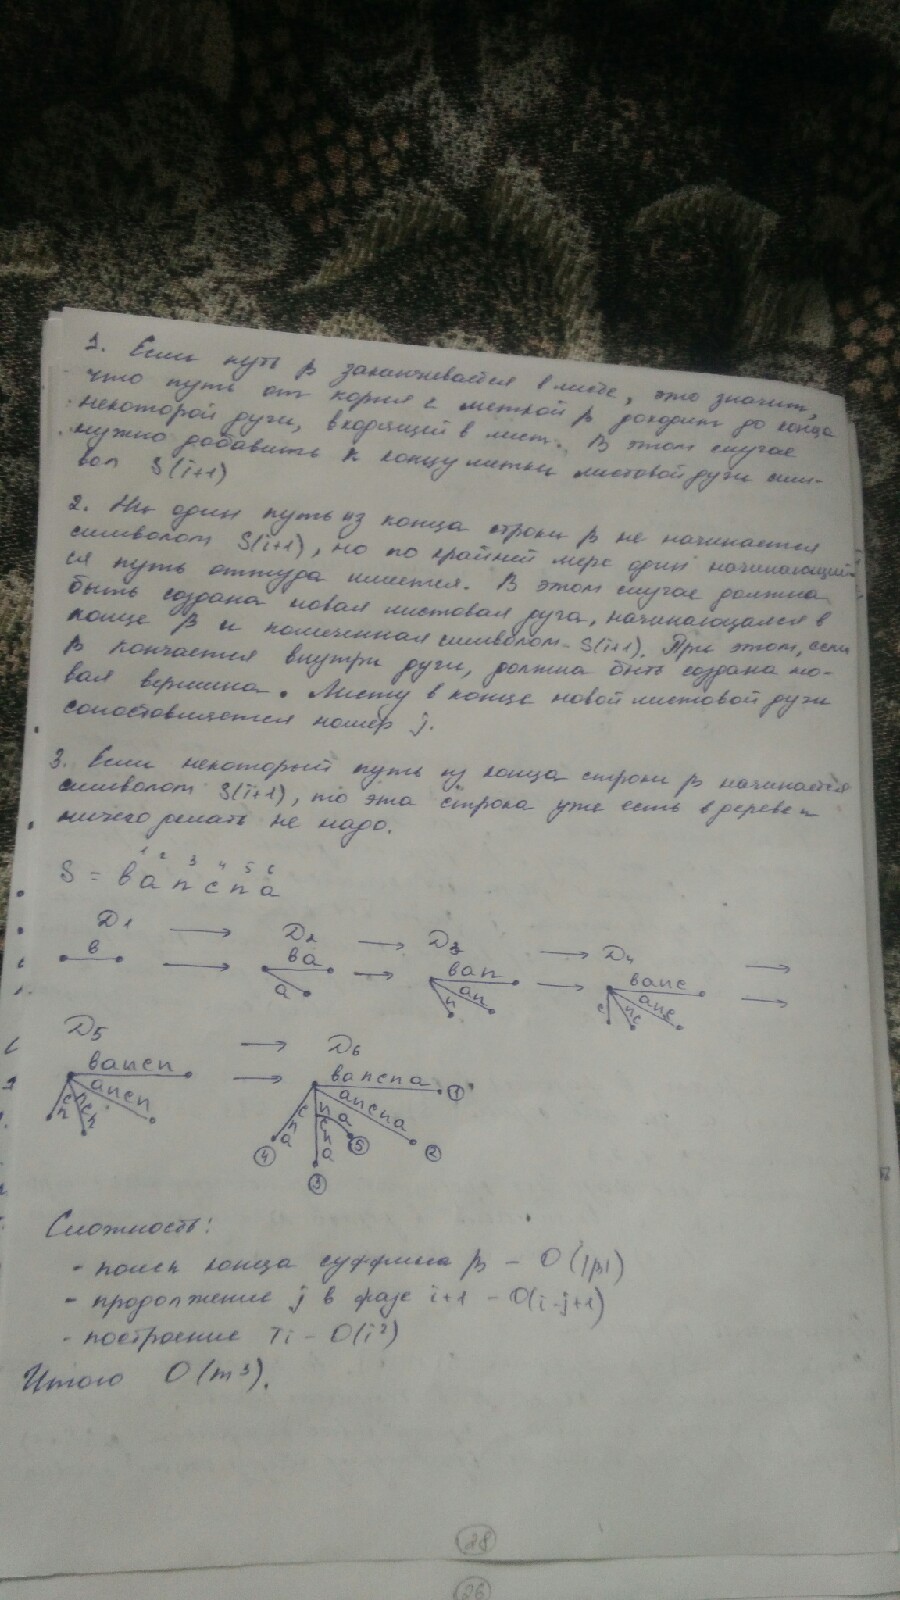 1. Если путь β заканчивается в листе, это значит,
что путь от корня с меткой β доходит до конца
некоторой дуги, входящий в лист. В этом случае
нужно добавить к концу метки листовой дуги сим-
вол S(i+1)
2. Ни один путь из конца строки β не начинается
символом S(i+1), но по крайней мере один начинающий-
ся путь оттуда имеется. В этом случае должна
быть создана новая листовая дуга, начинающаяся в
конце β и помеченная символом S(i+1). При этом, если
β кончается внутри дуги, должна быть создана но-
вая вершина. Листу в конце новой листовой дуги
сопоставляется номер j.
3. Если некоторый путь из конца строки β начинается
символом S(i+1), то эта строка уже есть в дереве и
ничего делать не надо.
1 2 3 4 5 6
S = ва п с п а
D1 → D2 → D3 → D4 →
в → ва → вап → вапс →
а ап п апс пс с
D5 → D6
вапсп → вапспа 1
апсп псп сп апспа 2
п а 5
спа 3
спа 4
Сложность:
- поиск конца суффикса β - O(|β|)
- продолжение j в фазе i+1 - O(i-j+1)
- построение Ti - O(i²)
Итого O(m³).
28
26